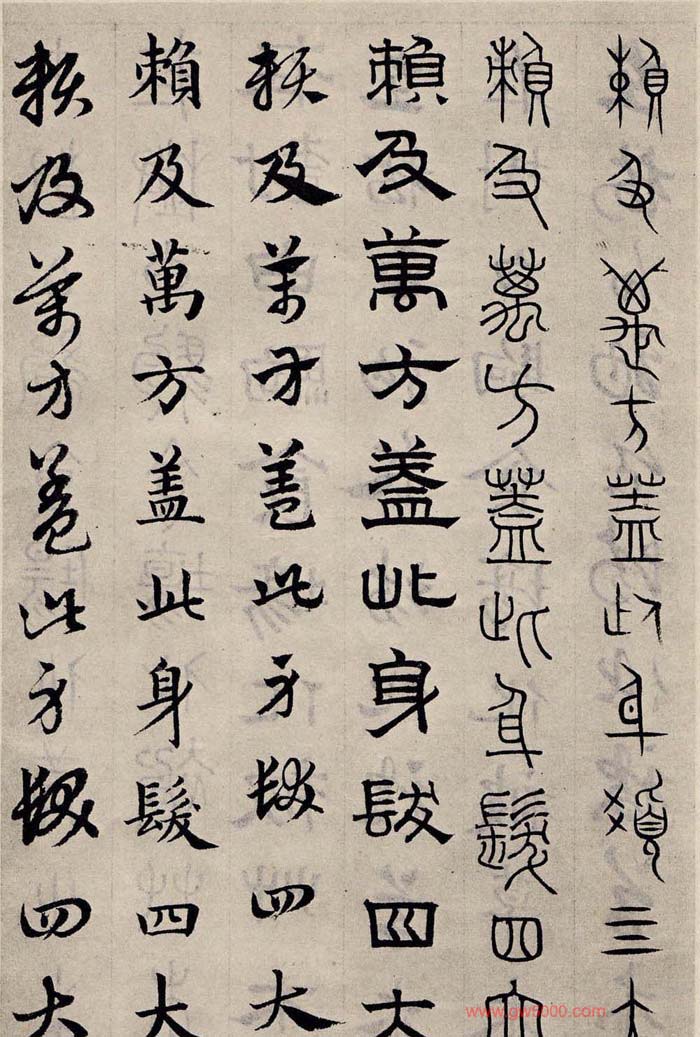 賴及萬方蓋此身髮四大
賴及萬方蓋此身髮四大
賴及萬方蓋此身髮四大
賴及萬方蓋此身髮四大
賴及萬方蓋此身髮四大
賴及萬方蓋此身髮四大
www.gwf5000.com